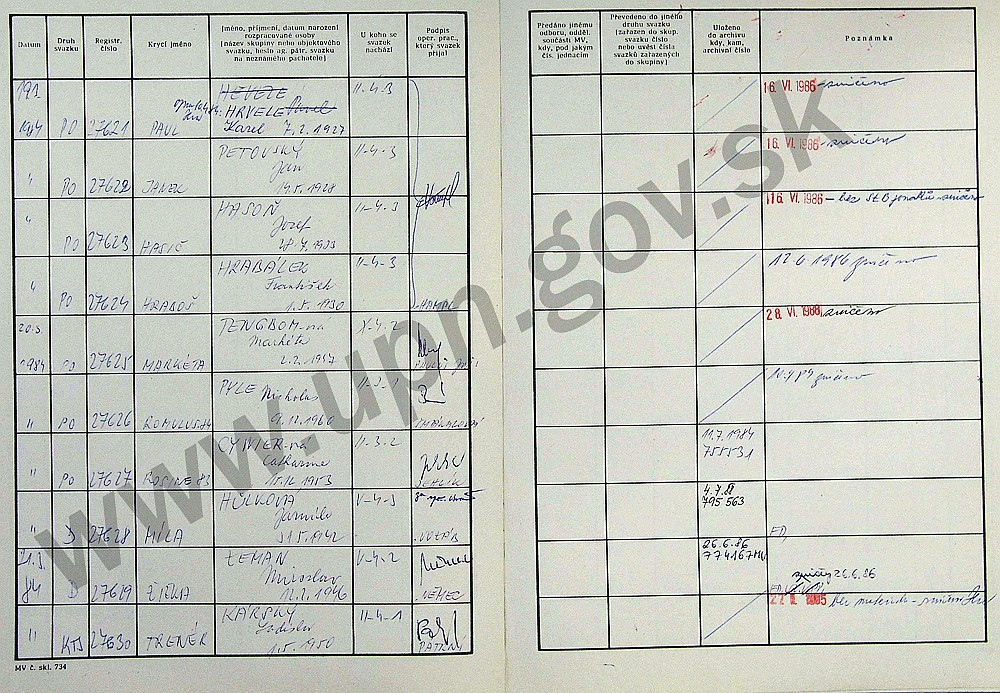 Datum
Druh svazku
Registr. číslo
Krycí jméno
Jméno, příjmení, datum narození
rozpracované osoby
(název skupiny nebo objektového
svazku, heslo ag. pátr. svazku
na neznámého pachatele)
U koho se
svazek
nachází
Podpis
oper. prac.,
který svazek
přijal
Předáno jinému
odboru, odděl.
součásti MV,
kdy, pod jakým
čís. jednacím
Převedeno do jiného
druhu svazku
(zařazen do skup.
svazku číslo
nebo uvést čísla
svazků zařazených
do skupiny)
Uloženo
do archivu
kdy, kam,
archivní číslo
Poznámka
PO 27621 PAUL HEVEZE
HRVELE
Karel 7.2.1927 II-4-3 16. VI. 1986 - zničeno
" PO 27622 JANEK PETOVSKÝ
Jan
19.5.1928 II-4-3 16. VI. 1986 - zničeno
" PO 27623 HASIČ HASOŇ
Jozef
28.7.1933 II-4-3 16. VI. 1986 - bez StB zničeno
" PO 27624 HRABOŠ HRABÁLEK
František
1.5.1930 II-4-3 HAMAL 12.6.1986 zničeno
20.3.
1984 PO 27625 MARKÉTA TENGBOM-ná
Markéta
2.2.1947 X-4-2 28. VI. 1988 zničeno
" PO 27626 PYLE Nicholas
9.12.1960 II-2-1 zničeno
" PO 27627 ROSINE 83 CYNIER-ná
Catharine
15.12.1953 II-3-2 11.7.1984
755531
" D 27628 MÍLA HŮLKOVÁ
Jarmila
31.5.1942 V-4-3 4.7.88
795 563
21.3.
84 D 27629 ŽIŽKA ZEMAN
Miroslav
12.2.1946 V-4-2 NĚMEC 26.6.86
774167 MV
26.6.86
" KTS 27630 TRENÉR KÁRSKÝ
Ladislav
1.5.1950 II-4-1 bez materiálu - zničeno
MV č. skl. 734
www.upn.gov.sk